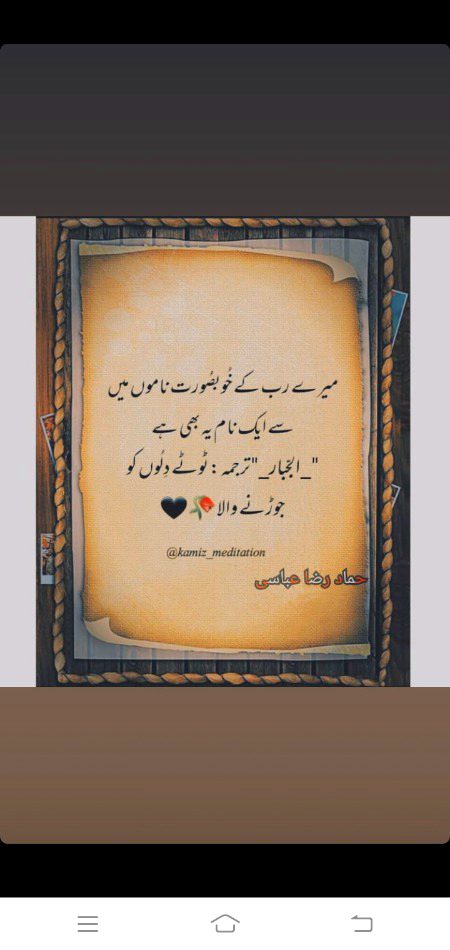 میرے رب کے خُوبصُورت ناموں میں
سے ایک نام یہ بھی ہے
"_الجبار_" ترجمہ : ٹوٹے دِلُوں کو
جوڑنے والا 🥀🖤
@kamiz_meditation
حماد رضا عباسی